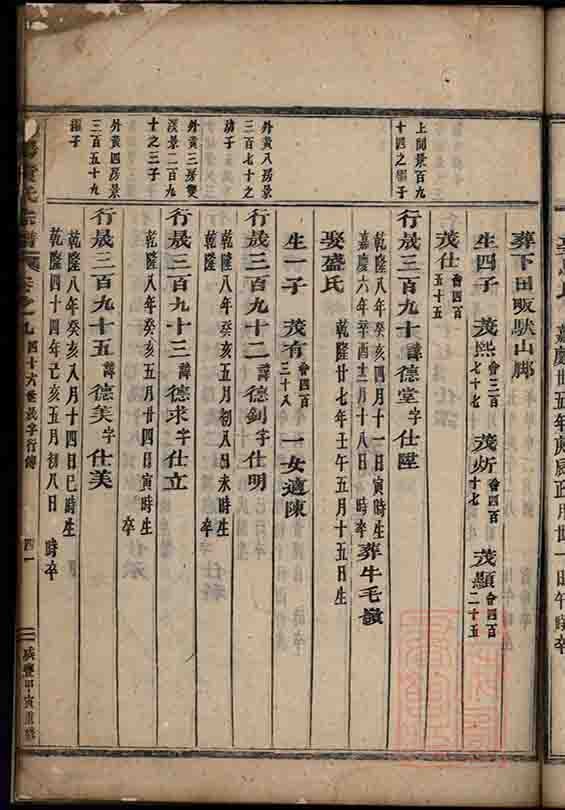 葬下田畈馱山脚
生四子 茂熙會三百七十七 茂炘會四百十七 茂顯會四百二十五
茂仕會四百五十五
上師景百九
十四之繼子
行晟三百九十諱德堂字仕陞
乾隆八年癸亥四月十一日寅時生
嘉慶六年辛酉十二月十八日 時卒 葬牛毛嶺
娶盛氏 乾隆廿七年壬午五月十五日生
生一子 茂有會四百三十八 一女適陳
外黃八房景
三百七十之
幼子
行晟三百九十二諱德釗字仕明
乾隆八年癸亥五月初八日未時生
乾隆 卒
外黃三房雙
溪景二百九
十之三子
行晟三百九十三諱德求字仕立
乾隆八年癸亥五月廿四日寅時生
卒
外黃四房景
三百五十九
繼子
行晟三百九十五諱德美字仕美
乾隆八年癸亥八月十四日巳時生
乾隆四十四年己亥五月初八日 時卒
氏宗譜 卷之九 四十六世晟字行傳 四一 咸豐甲寅重修